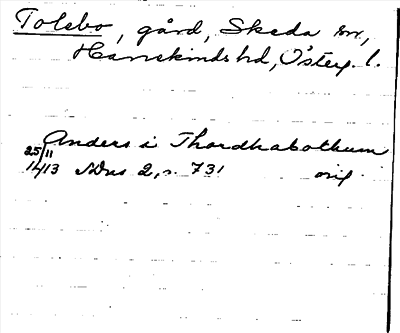 Tolebo, gård, Skeda sn,
Hanekinds hd, Österg. l.
Anders i Thordhabothum
25/11
1413 SDns 2, s. 731 orig